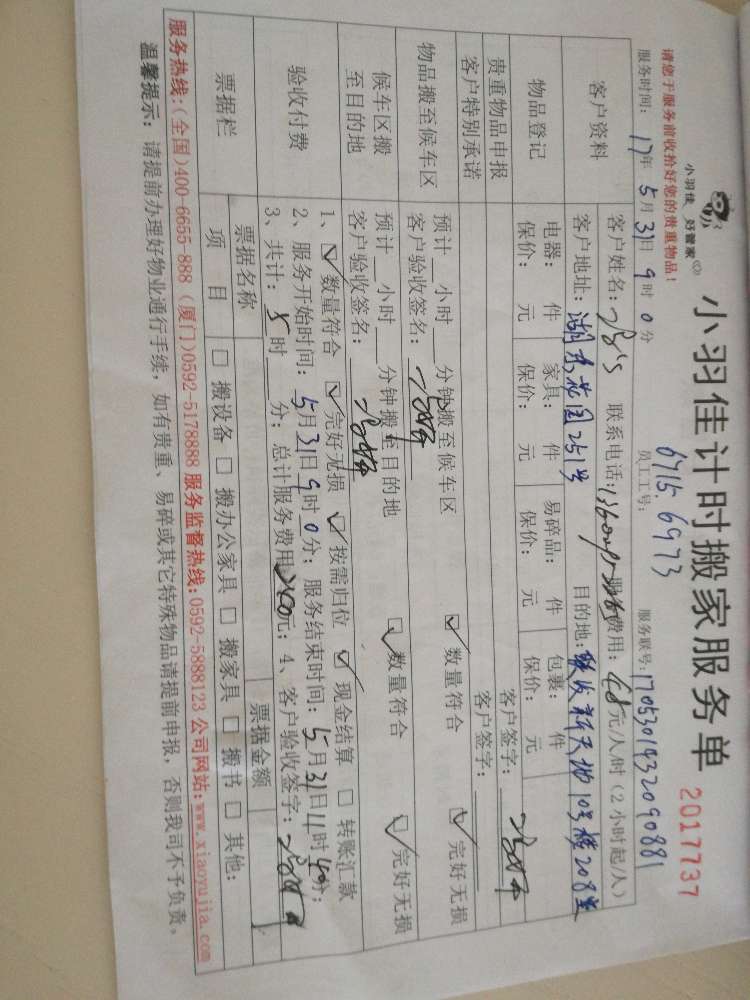 小羽佳 好管家
小羽佳计时搬家服务单
2017737
请您于服务前收拾好您的贵重物品！
员工工号： 6715 6973
服务时间： 17年 5月 31日 9时 0分
服务联号： 1705301932090881
客户资料
客户姓名： 联系电话： 费用： 68元/人/时（2小时起/人）
客户地址： 湖东花园251号 目的地： 联发新天地10号楼208室
物品登记
电器： 件 家具： 件 易碎品： 件 包裹： 件
保价： 元 保价： 元 保价： 元 保价： 元
贵重物品申报 客户签字：
客户特别承诺 客户签字：
物品搬至候车区
预计 小时 分钟搬至候车区 ☑ 数量符合 ☑ 完好无损
客户验收签名：
候车区搬
至目的地
预计 小时 分钟搬至目的地 ☑ 数量符合 ☑ 完好无损
客户验收签名：
验收付费
1、☑ 数量符合 ☑ 完好无损 ☑ 按需归位 ☑ 现金结算 □ 转账汇款
2、服务开始时间： 5月31日9时0分； 服务结束时间： 5月31日11时40分；
3、共计： 时 分； 总计服务费用 元；4、客户验收签字：
票据栏
票据名称 票据金额
项 目 □ 搬设备 □ 搬办公家具 □ 搬家具 □ 搬书 □ 其他：
服务热线：（全国）400-6655-888（厦门）0592-5178888 服务监督热线：0592-5888123 公司网站：www.xiaoyujia.com
温馨提示：请提前办理好物业通行手续，如有贵重、易碎或其它特殊物品请提前申报，否则我司不予负责。